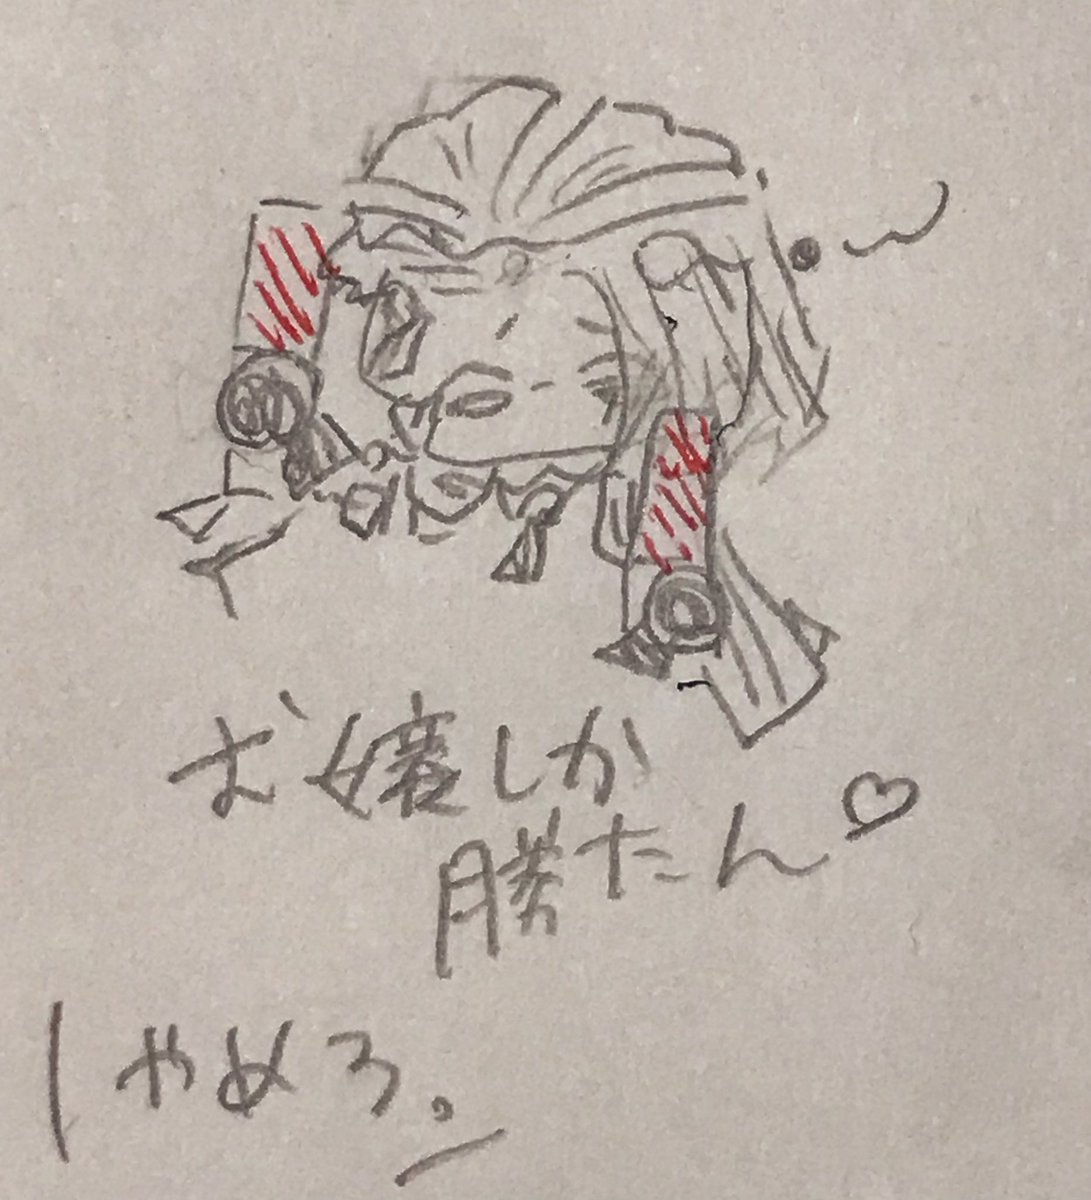 お嬢しか
勝たん♡
やめろ。